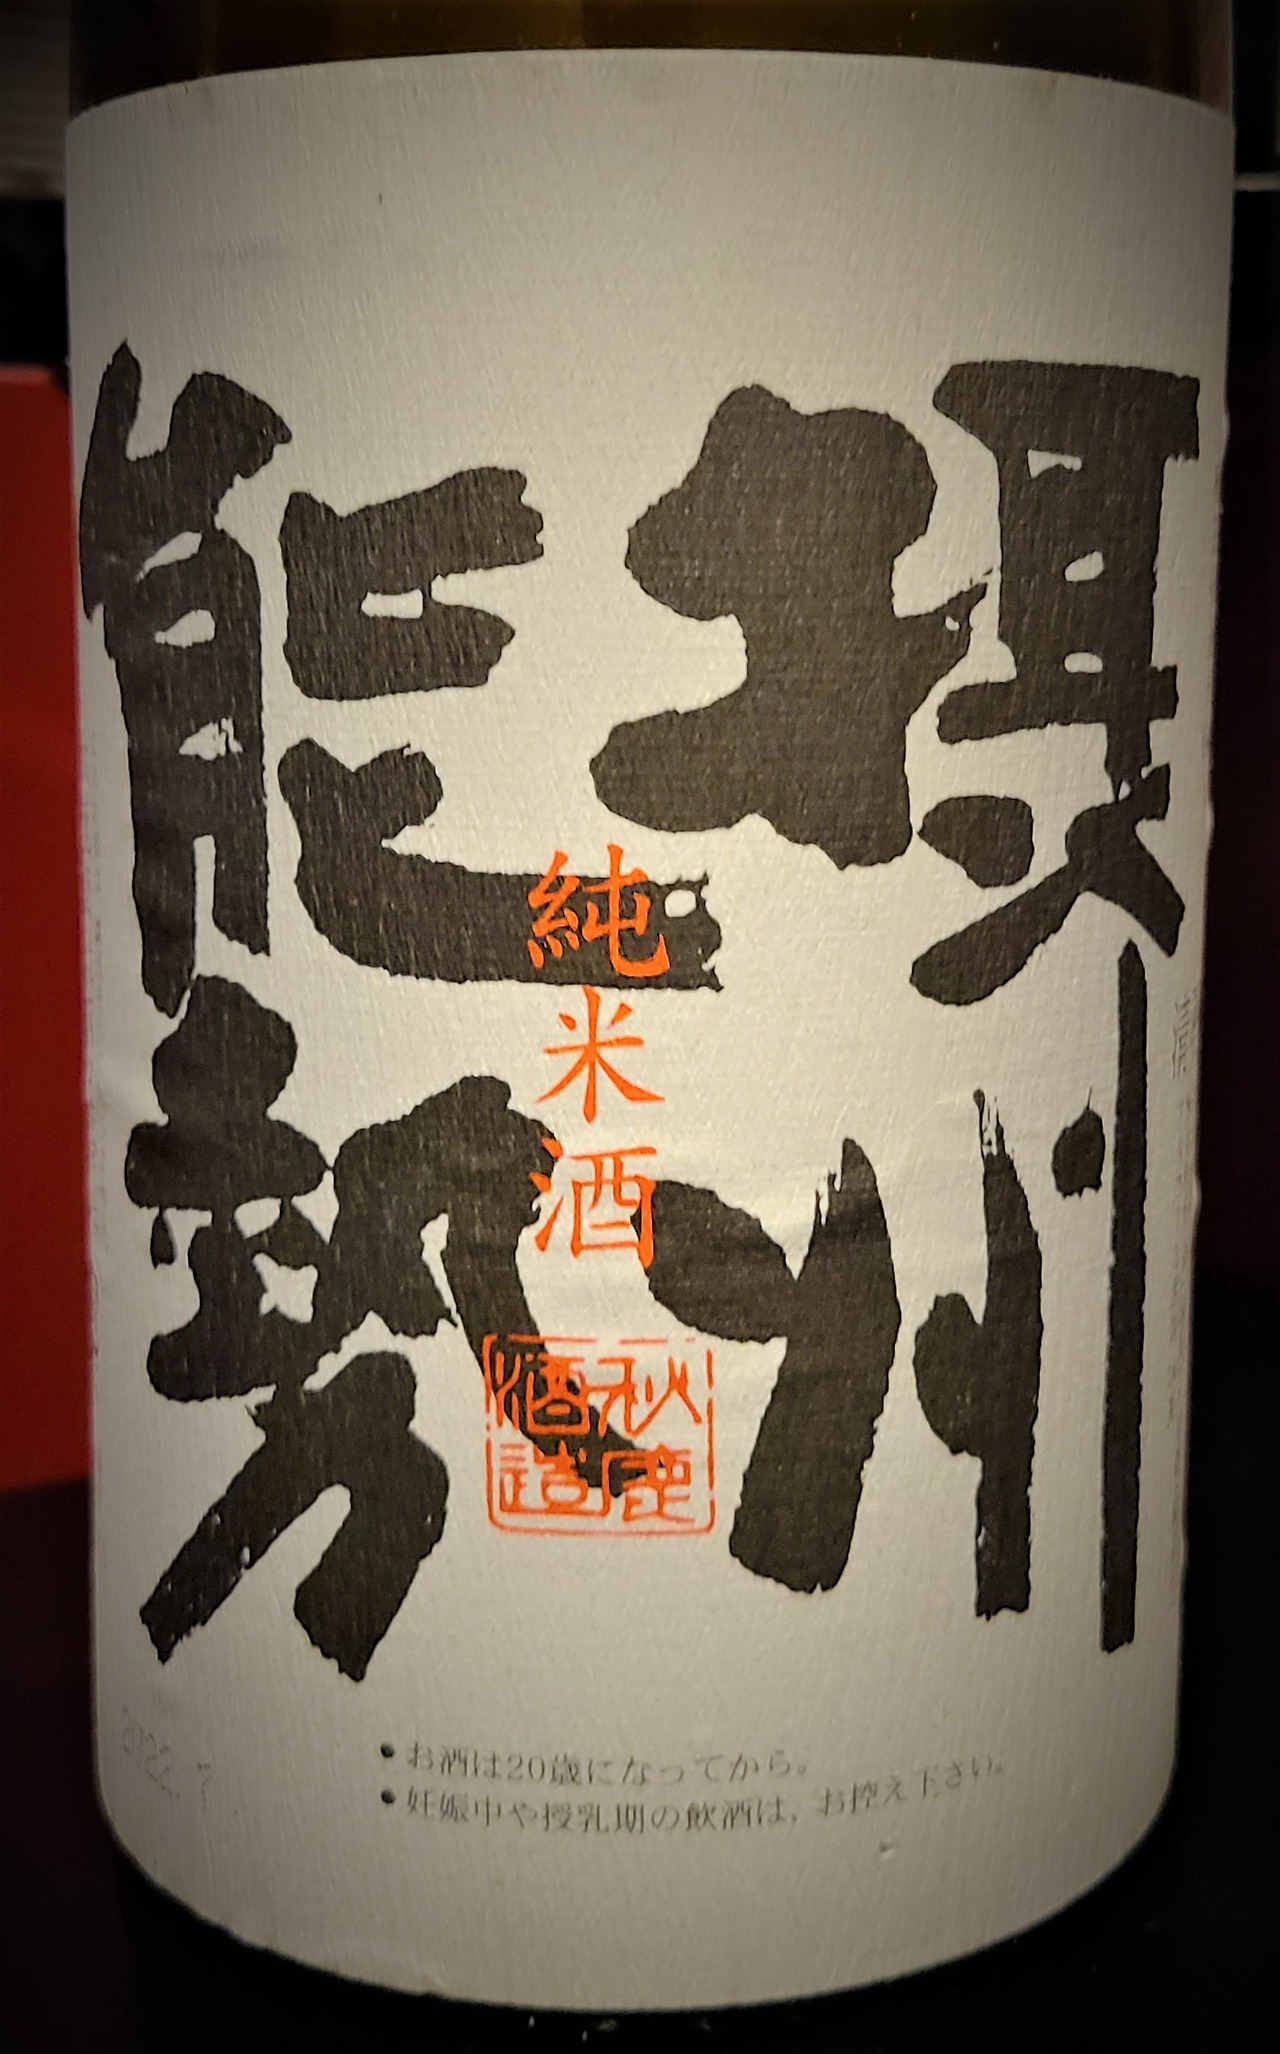 摂州
能勢
純米酒
秋鹿
酒造
●お酒は20歳になってから。
●妊娠中や授乳期の飲酒は、お控え下さい。